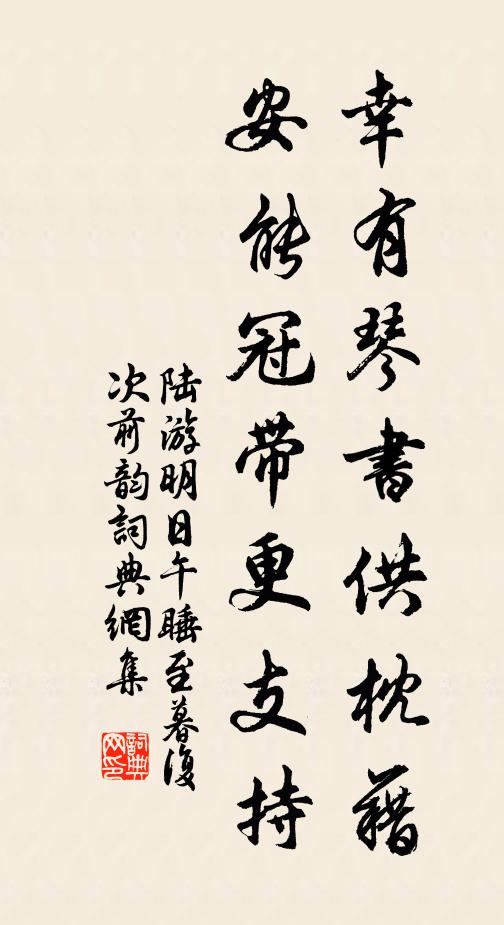 幸有琴書供枕藉
安能冠帶更支持
陆游明日午睡至暮復
次前韵詞典網集
詞典网印